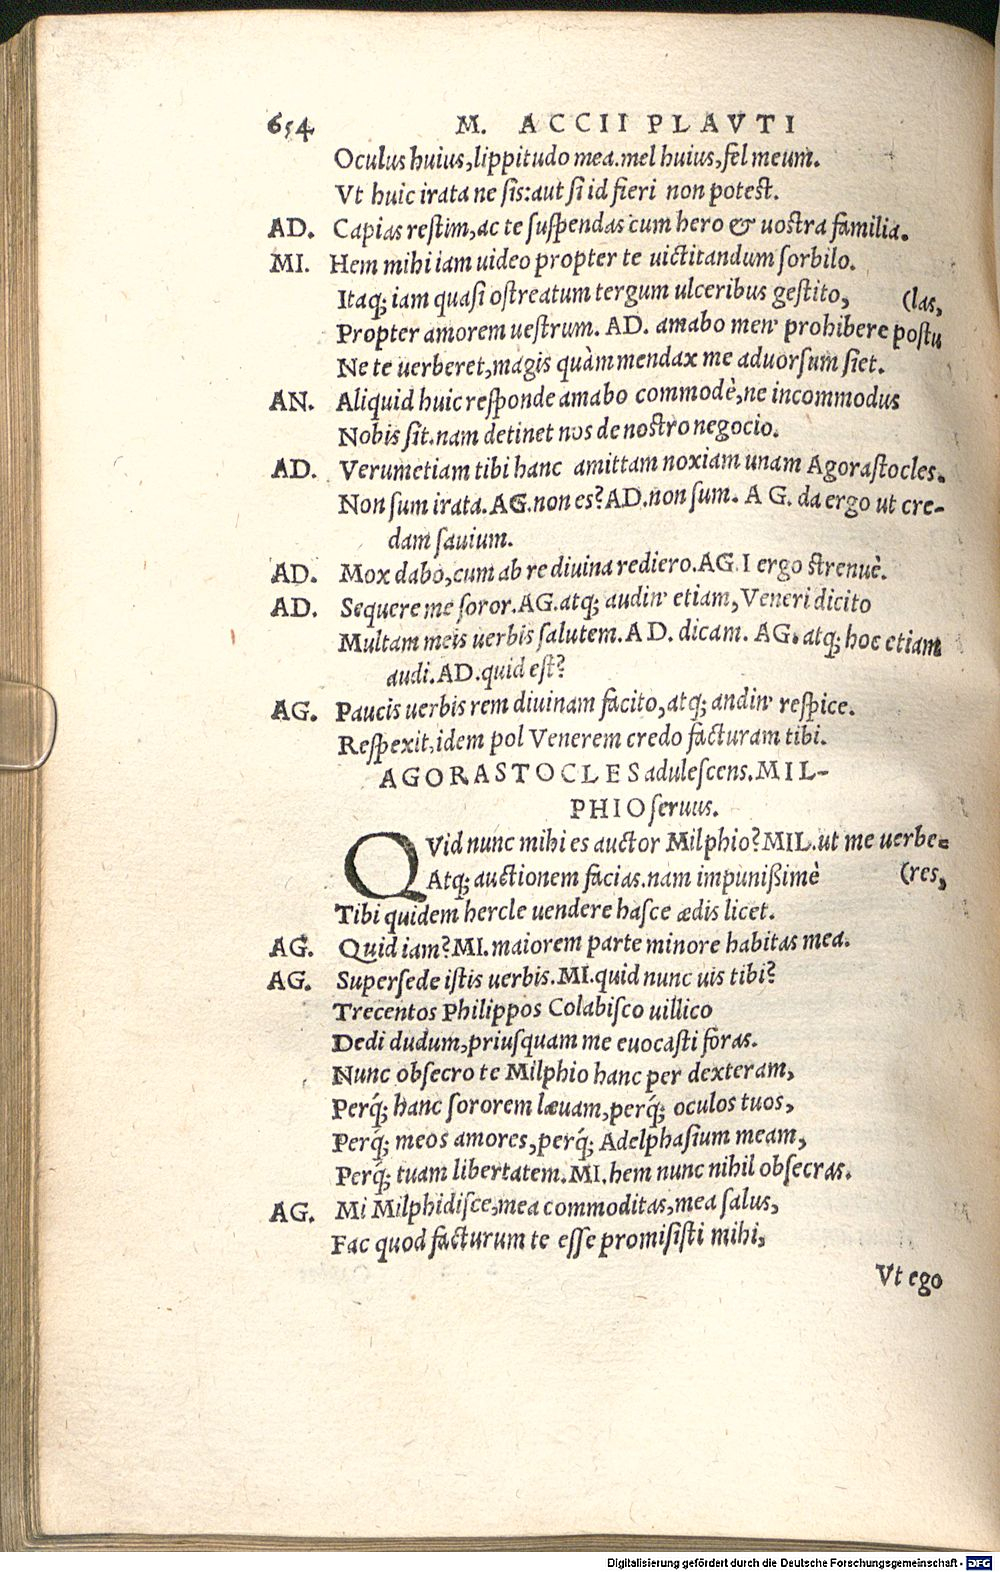 654 M. ACCII PLAVTI
Oculus huius,lippitudo mea.mel huius,fel meum.
Vt huic irata ne ſis:aut ſi id fieri non poteſt.
AD. Capias reſtim,ac te ſuſpendas cum hero & uoſtra familia.
MI. Hem mihi iam uideo propter te uictitandum ſorbilo.
Itaq; iam quaſi oſtreatum tergum ulceribus geſtito, (las,
Propter amorem ueſtrum. AD. amabo men' prohibere poſtu
Ne te uerberet,magis quàm mendax me aduorſum ſiet.
AN. Aliquid huic reſponde amabo commodè,ne incommodus
Nobis ſit.nam detinet nos de noſtro negocio.
AD. Verumetiam tibi hanc amittam noxiam unam Agoraſtocles.
Non ſum irata. AG. non es? AD. non ſum. AG. da ergo ut cre-
dam ſauium.
AD. Mox dabo,cum ab re diuina rediero. AG. I ergo ſtrenuè.
AD. Sequere me ſoror. AG. atq; audin' etiam, Veneri dicito
Multam meis uerbis ſalutem. AD. dicam. AG. atq; hoc etiam
audi. AD. quid eſt?
AG. Paucis uerbis rem diuinam facito,atq; andin' reſpice.
Reſpexit,idem pol Venerem credo facturam tibi.
AGORASTOCLES aduleſcens. MIL-
PHIO ſeruus.
QVid nunc mihi es auctor Milphio? MIL. ut me uerbe-
Atq; auctionem facias.nam impunißimè (res,
Tibi quidem hercle uendere haſce ædis licet.
AG. Quid iam? MI. maiorem parte minore habitas mea.
AG. Superſede iſtis uerbis. MI. quid nunc uis tibi?
Trecentos Philippos Colabiſco uillico
Dedi dudum,priuſquam me euocaſti foras.
Nunc obſecro te Milphio hanc per dexteram,
Perq́; hanc ſororem læuam,perq́; oculos tuos,
Perq́; meos amores,perq́; Adelphaſium meam,
Perq́; tuam libertatem. MI. hem nunc nihil obſecras.
AG. Mi Milphidiſce,mea commoditas,mea ſalus,
Fac quod facturum te eſſe promiſiſti mihi,
Vt ego
Digitalisierung gefördert durch die Deutsche Forschungsgemeinschaft - DFG